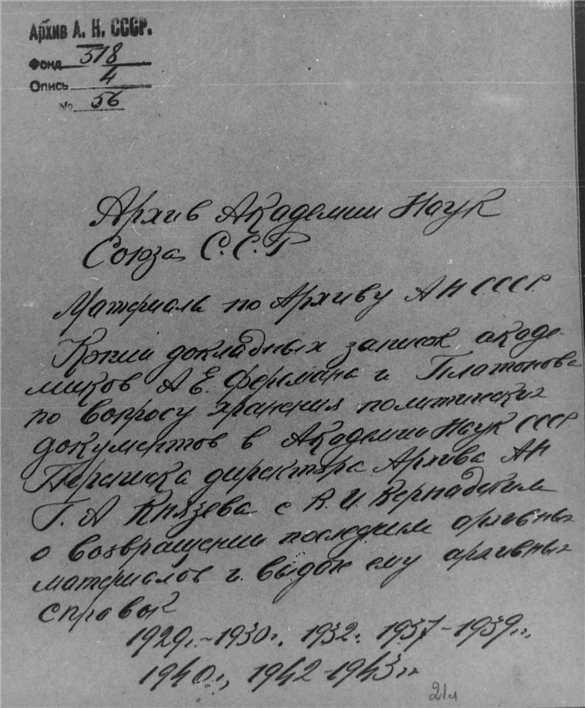 Архив А. Н. СССР.
Фонд 518
Опись 4
№ 56
Архив Академии Наук
Союза С.С.Р
Материалы по Архиву АН СССР
Копии докладных записок акаде-
миков А.Е. Ферсмана и Платонова
по вопросу хранения политических
документов в Академии Наук СССР
Переписка директора Архива АН
Г. А Князева с В. И Вернадским
о возвращении последним архивных
материалов и выдок ему архивных
справы
1929г.-1930г., 1932г. 1937-1939г.г.,
1940г., 1942-1943г.г.
21л